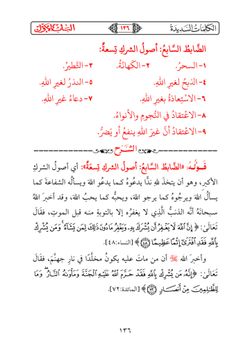 الكلمات السديدة
١٣٦
الضابطُ السَّابعُ: أصولُ الشركِ تِسعةٌ:
١- السحرُ.
٢- الكَهانَةُ.
٣- التطيُّرُ.
٤- الذبحُ لغيرِ اللهِ.
٥- النذرُ لغيرِ اللهِ.
٦- الاستِعاذةُ بغيرِ اللهِ.
٧- دعاءُ غيرِ اللهِ.
٨- الاعْتقادُ في النُّجومِ والأنواءِ.
٩- الاعتقادُ أنَّ غيرَ اللهِ ينفعُ أو يَضرُّ.
الشرح
قَولُهُ: «الضَّابطُ السَّابعُ: أصولُ الشركِ تِسعةٌ»: أي أصولُ الشركِ
الأكبرِ، وهو أن يتخذَ للهِ ندًّا يدعُوهُ كما يدعُو اللهَ ويسألُه الشفاعةَ كما
يسألُ اللهَ ويرجُوهُ كما يرجو اللهَ، ويحبُّه كما يحبُّ اللهَ، وقد أخبرَ اللهُ
سبحانَهُ أنَّه الذنبُ الَّذِي لا يغفرُه إلا بالتوبةِ منه قبلَ الموتِ، فقالَ
تَعالَى: ﴿إِنَّ ٱللَّهَ لَا يَغْفِرُ أَن يُشْرَكَ بِهِۦ وَيَغْفِرُ مَا دُونَ ذَٰلِكَ لِمَن يَشَآءُ ۚ وَمَن يُشْرِكْ
بِٱللَّهِ فَقَدِ ٱفْتَرَىٰٓ إِثْمًا عَظِيمًا ﴿٤٨﴾﴾ [النساء: ٤٨].
وأخبرَ اللهُ أن من ماتَ عليه يكونُ مخلَّدًا في نارِ جهنَّمَ، فقالَ
تعَالَى: ﴿إِنَّهُۥ مَن يُشْرِكْ بِٱللَّهِ فَقَدْ حَرَّمَ ٱللَّهُ عَلَيْهِ ٱلْجَنَّةَ وَمَأْوَىٰهُ ٱلنَّارُ ۖ وَمَا
لِلظَّٰلِمِينَ مِنْ أَنصَارٍ ﴿٧٢﴾﴾ [المائدة: ٧٢].
١٣٦